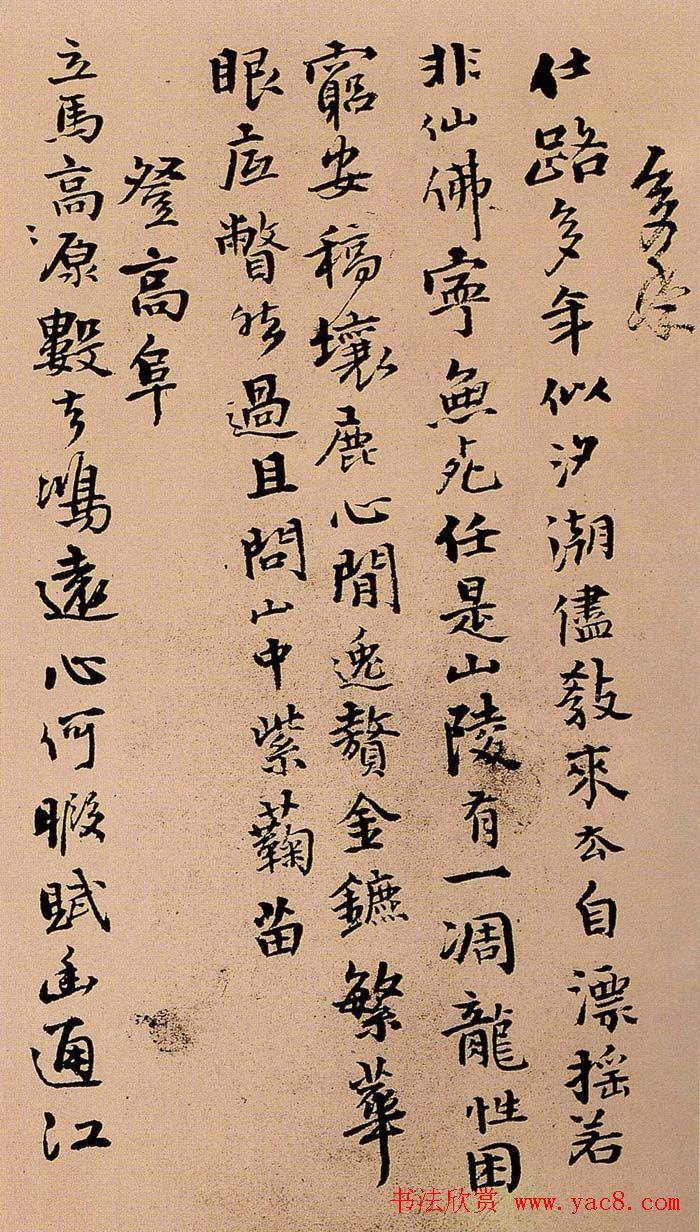 多年
仕路多年似汐潮儘教來去自漂摇若
非仙佛寧無死任是山陵有一凋龍性困
窮安稿壤鹿心閒逸贅金鑣繁華
眼底瞥然過且問山中紫菊苗
登高阜
立馬高源數去鴻遠心何暇賦幽通江
书法欣赏 www.yac8.com